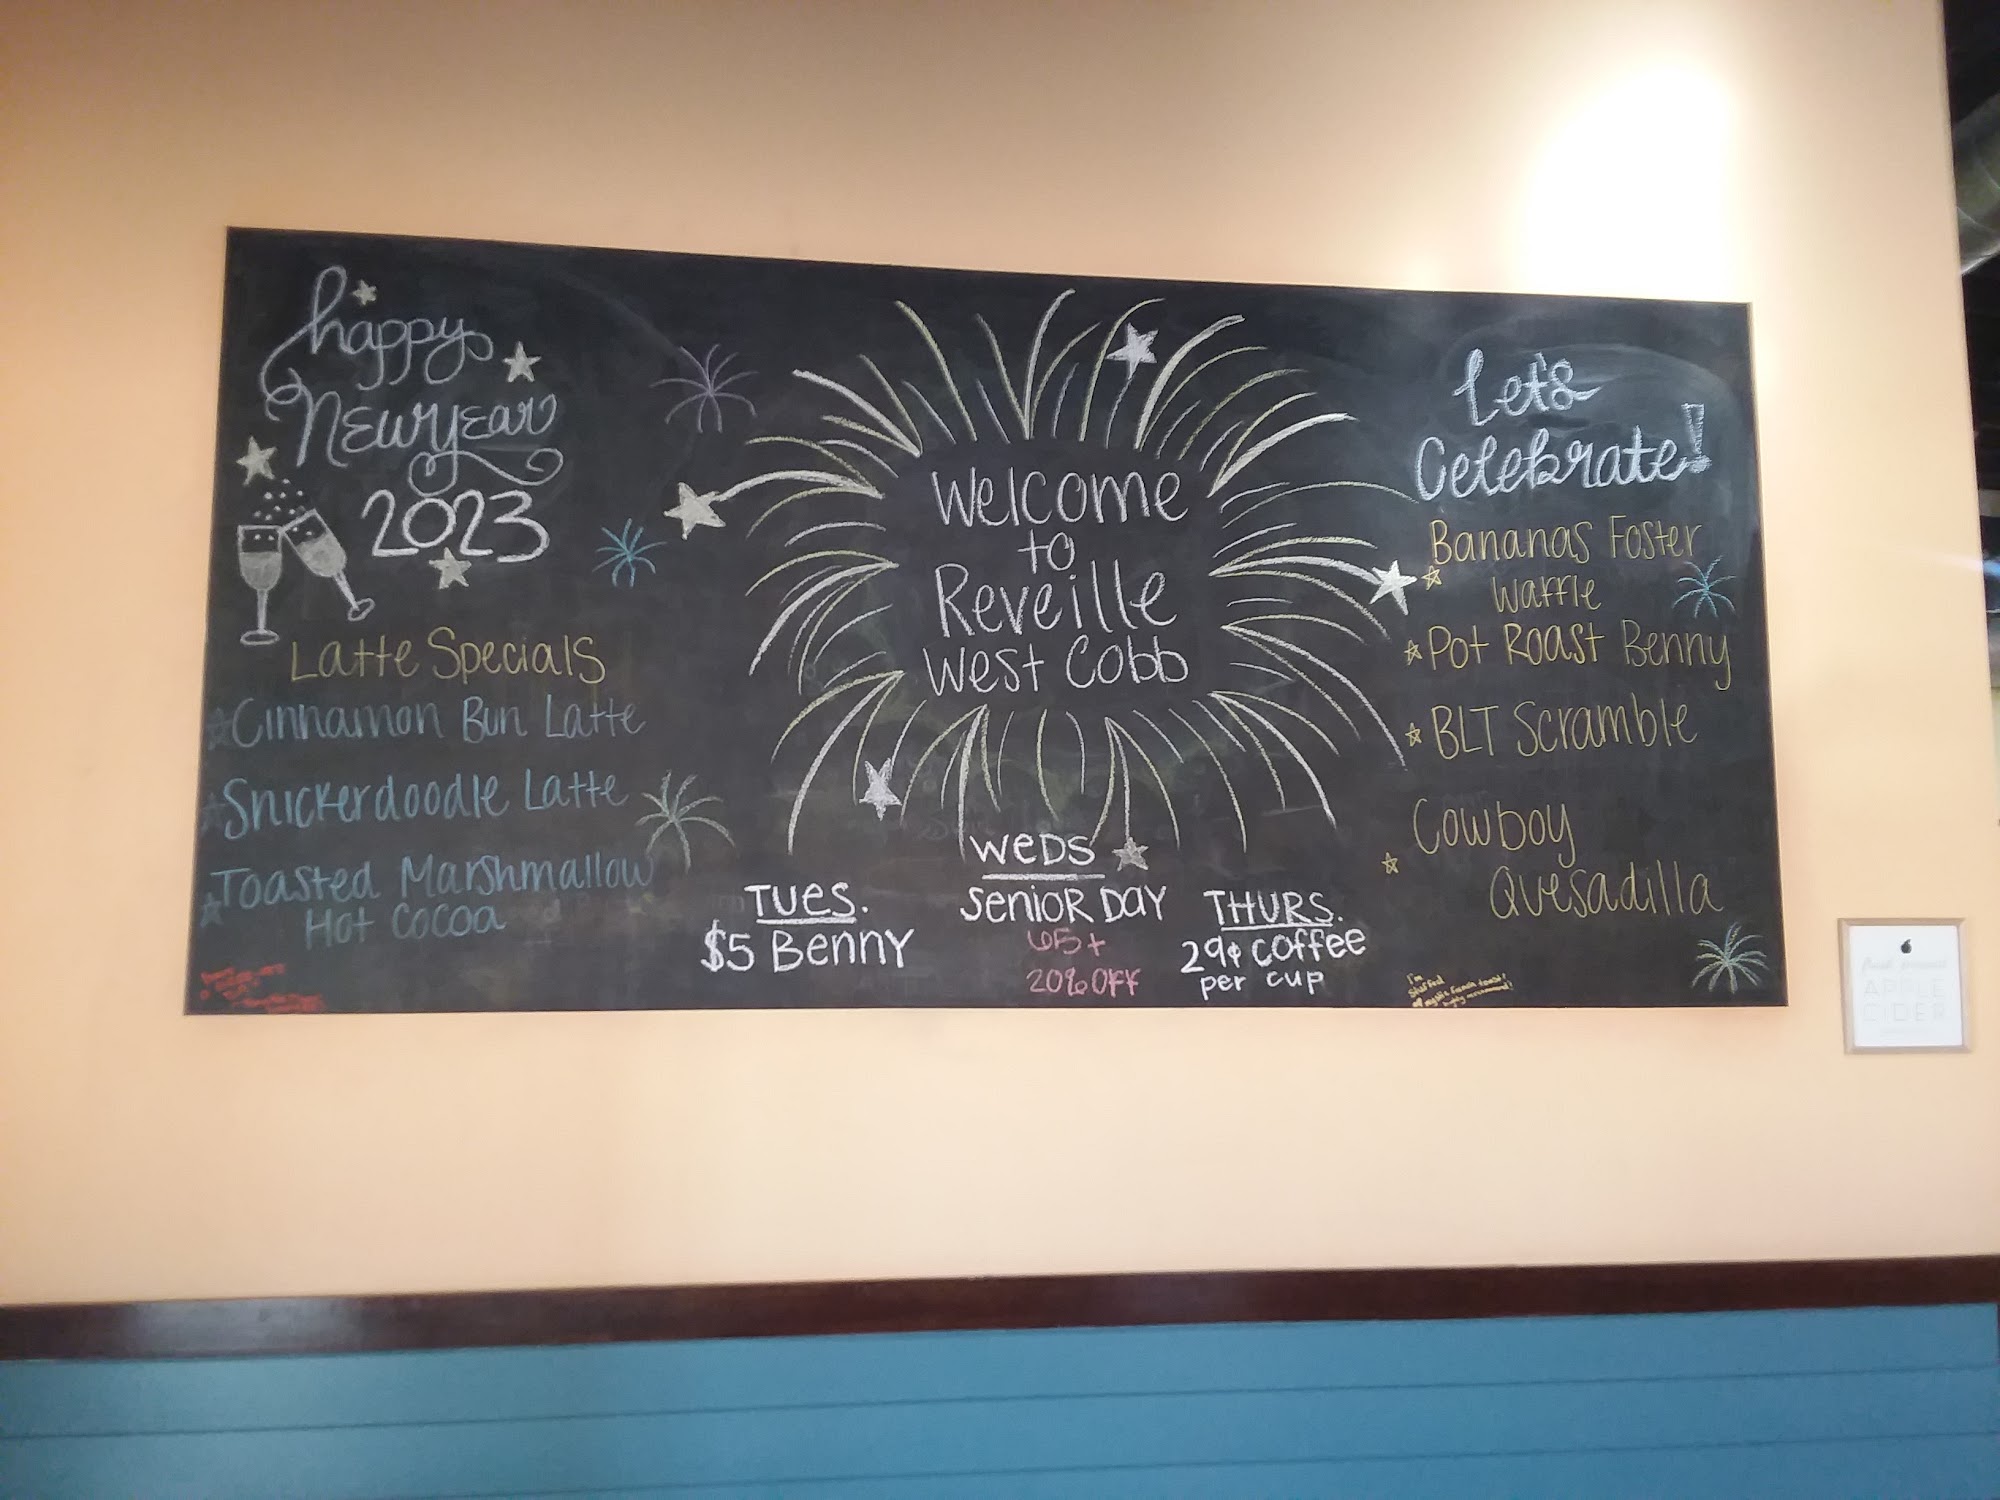 happy
New year
2023
Latte Specials
Cinnamon Bun Latte
Snickerdoodle Latte
Toasted Marshmallow
Hot Cocoa
Welcome
to
Reveille
West Cobb
TUES.
$5 Benny
WEDS
Senior Day
65+
20% OFF
THURS.
29¢ coffee
per cup
Let's
Celebrate!
Bananas Foster
Waffle
Pot Roast Benny
BLT Scramble
Cowboy
Quesadilla
I'm
Stuffed
French toast
highly recommend!
APPLE
CIDER